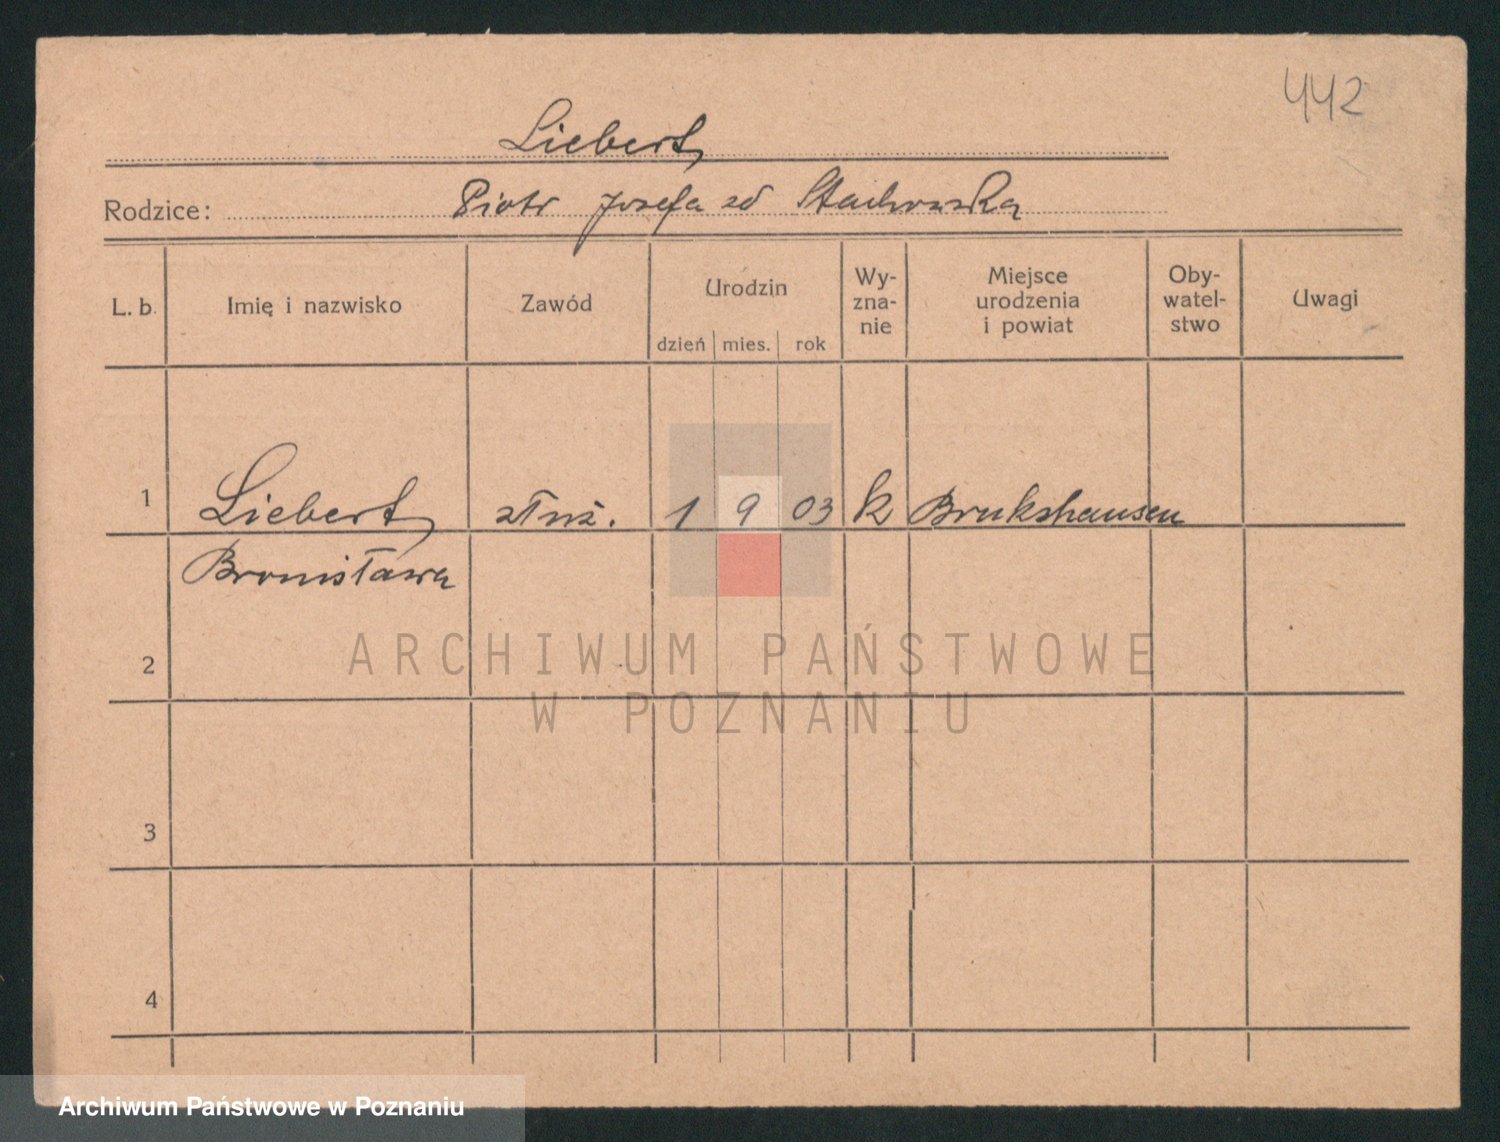 442
Liebert
Rodzice: Piotr Józefa zd Stachowska
L. b. Imię i nazwisko Zawód Urodzin dzień mies. rok Wy-zna-nie Miejsce urodzenia i powiat Oby-watel-stwo Uwagi
1 Liebert służ. 1 9 03 k Brukshausen
Bronisława
2
3
4
ARCHIWUM PAŃSTWOWE
W POZNANIU
Archiwum Państwowe w Poznaniu